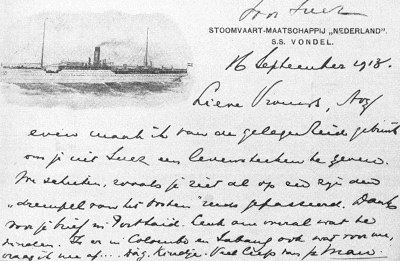 STOOMVAART-MAATSCHAPPIJ „NEDERLAND".
S.S. VONDEL.
16 September 1918.
Lieve
even maak ik van de gelegenheid gebruik
om je uit Suez een levensteeken te geven.
We schieten, zooals je ziet al op en zijn den
„drempel van het Oosten" reeds gepasseerd. Dank
voor je brief in Portsaid. om overal wat te
vinden. Is er in Colombo en Sabang ook wat voor me,
vraag ik me af... Dag, Kindje. Veel liefs van je